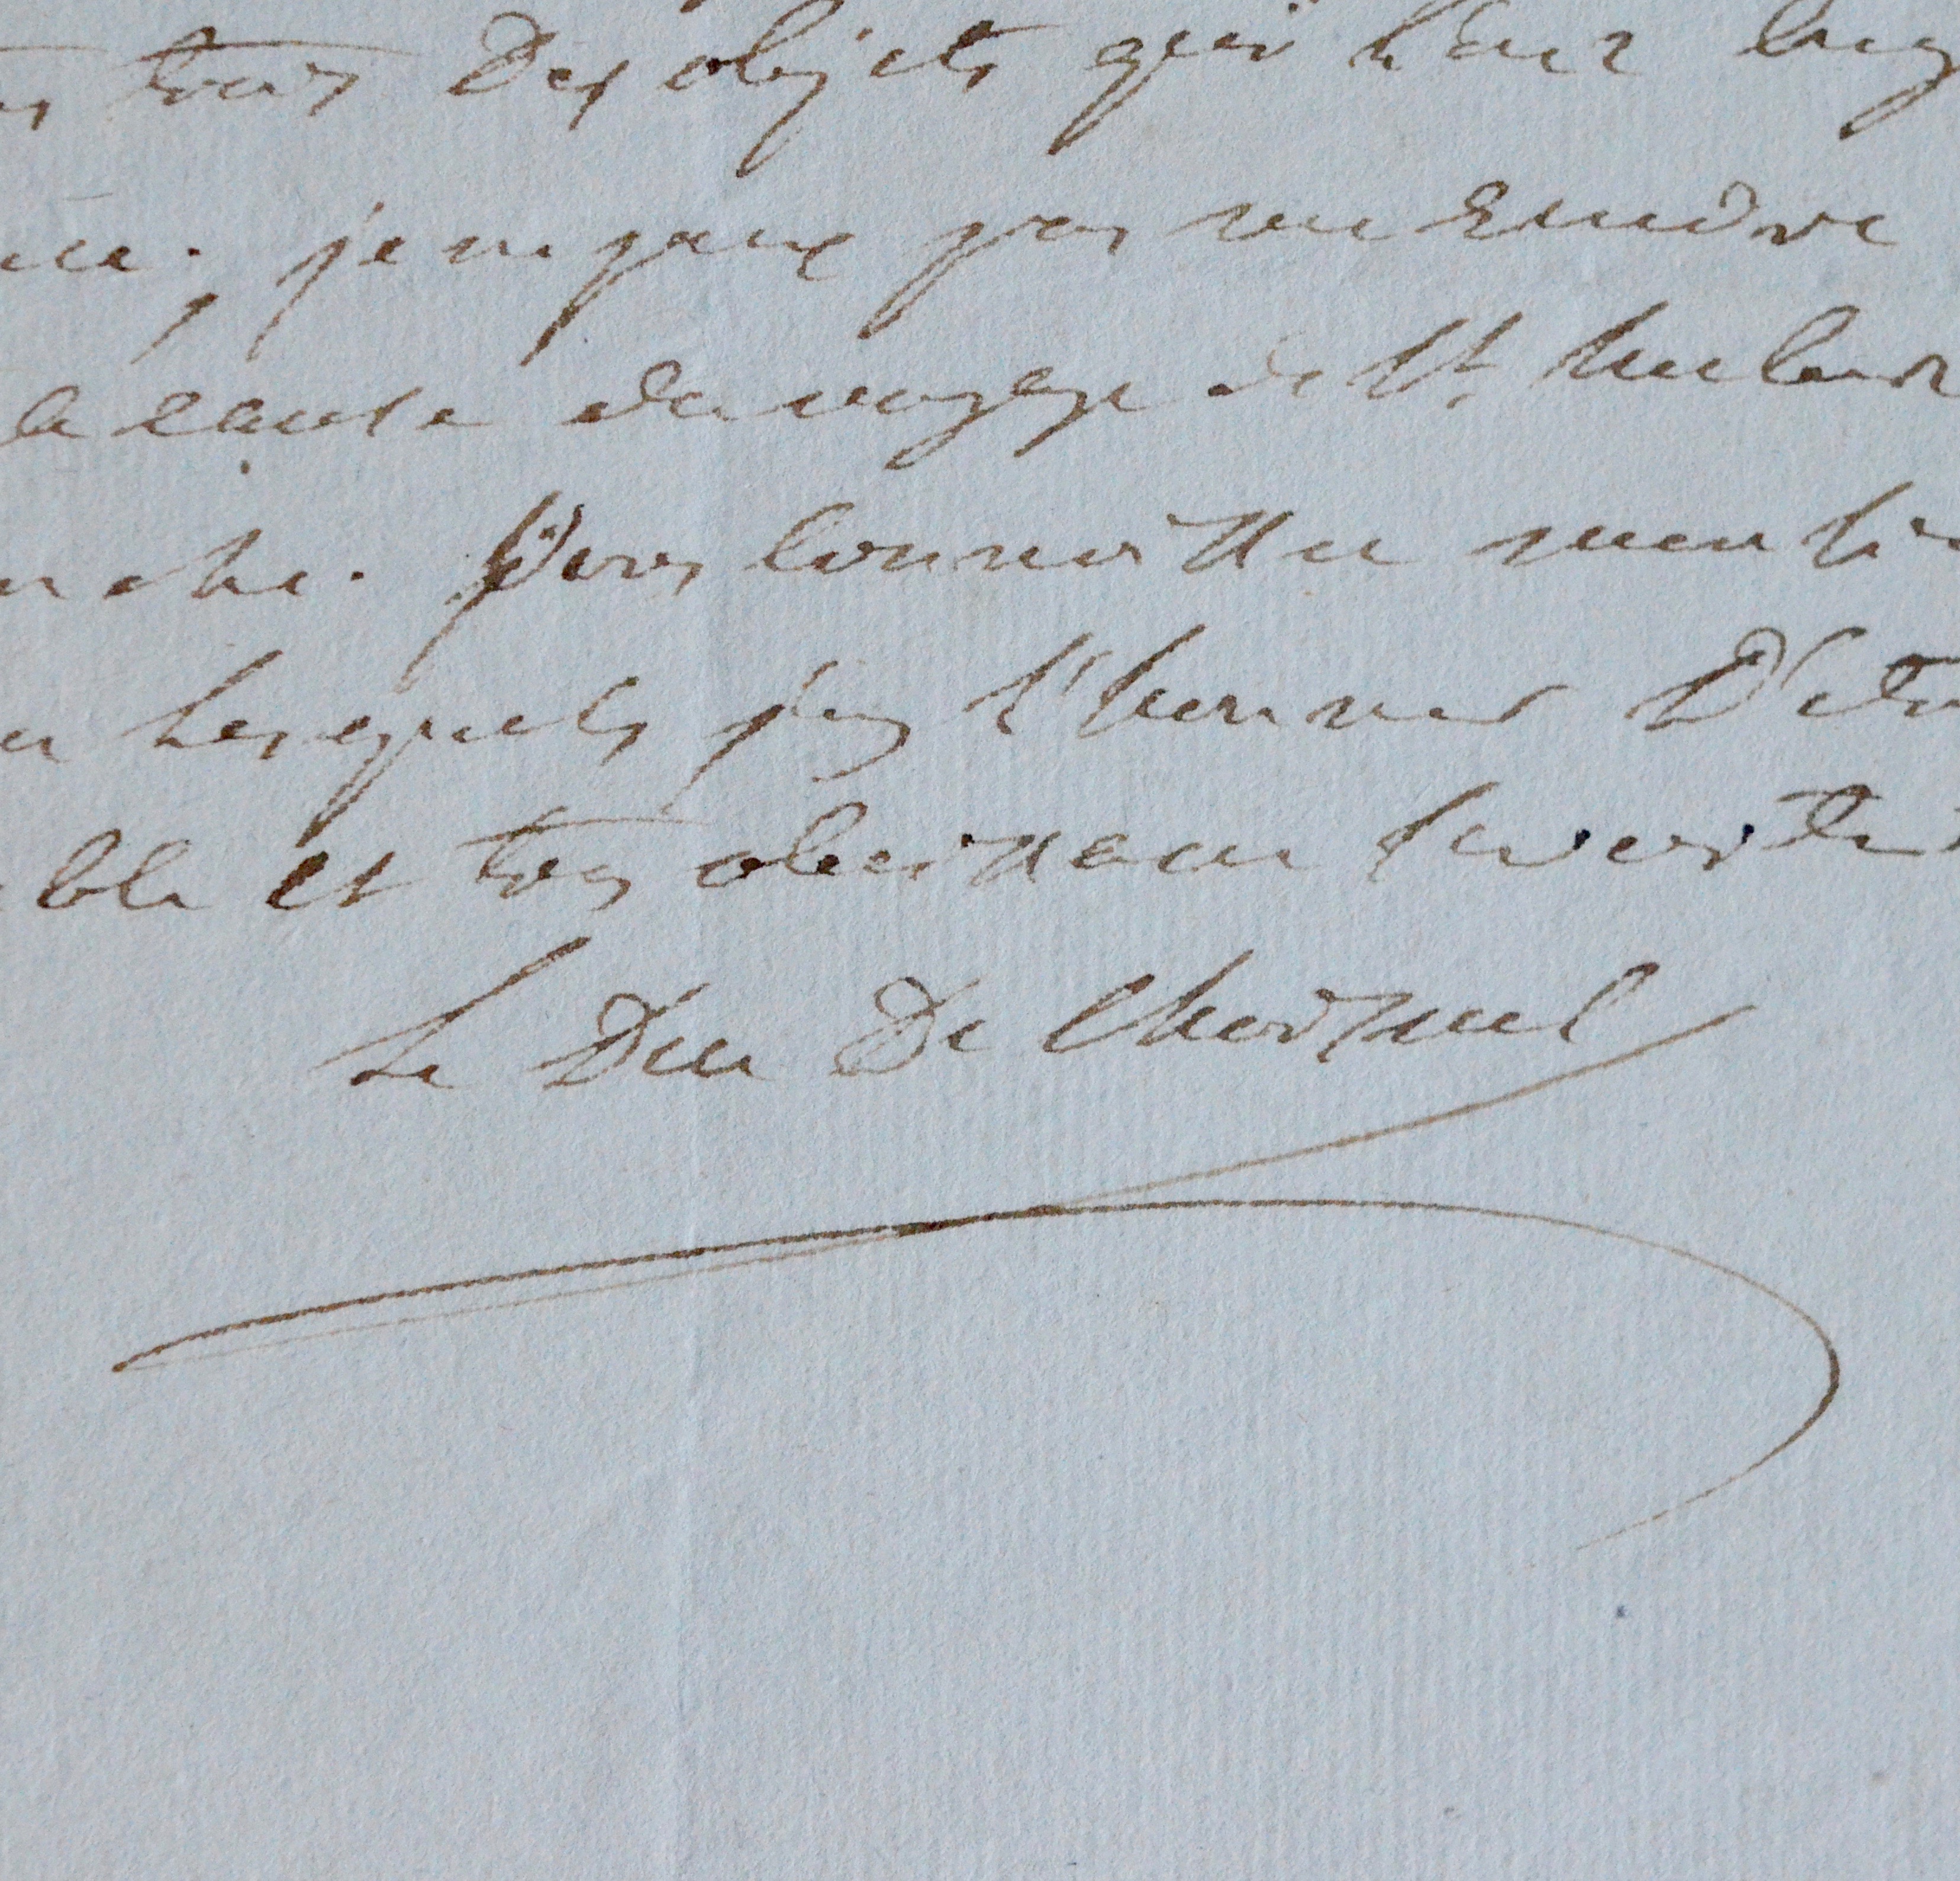 tous Des objets qui leur
je ne peux pas me rendre
la cause du voyage de St hubert
Vous connoissez
lesquels j'ay l'honneur D'etre
ble et tres obeissant serviteur
Le Duc De Choiseul